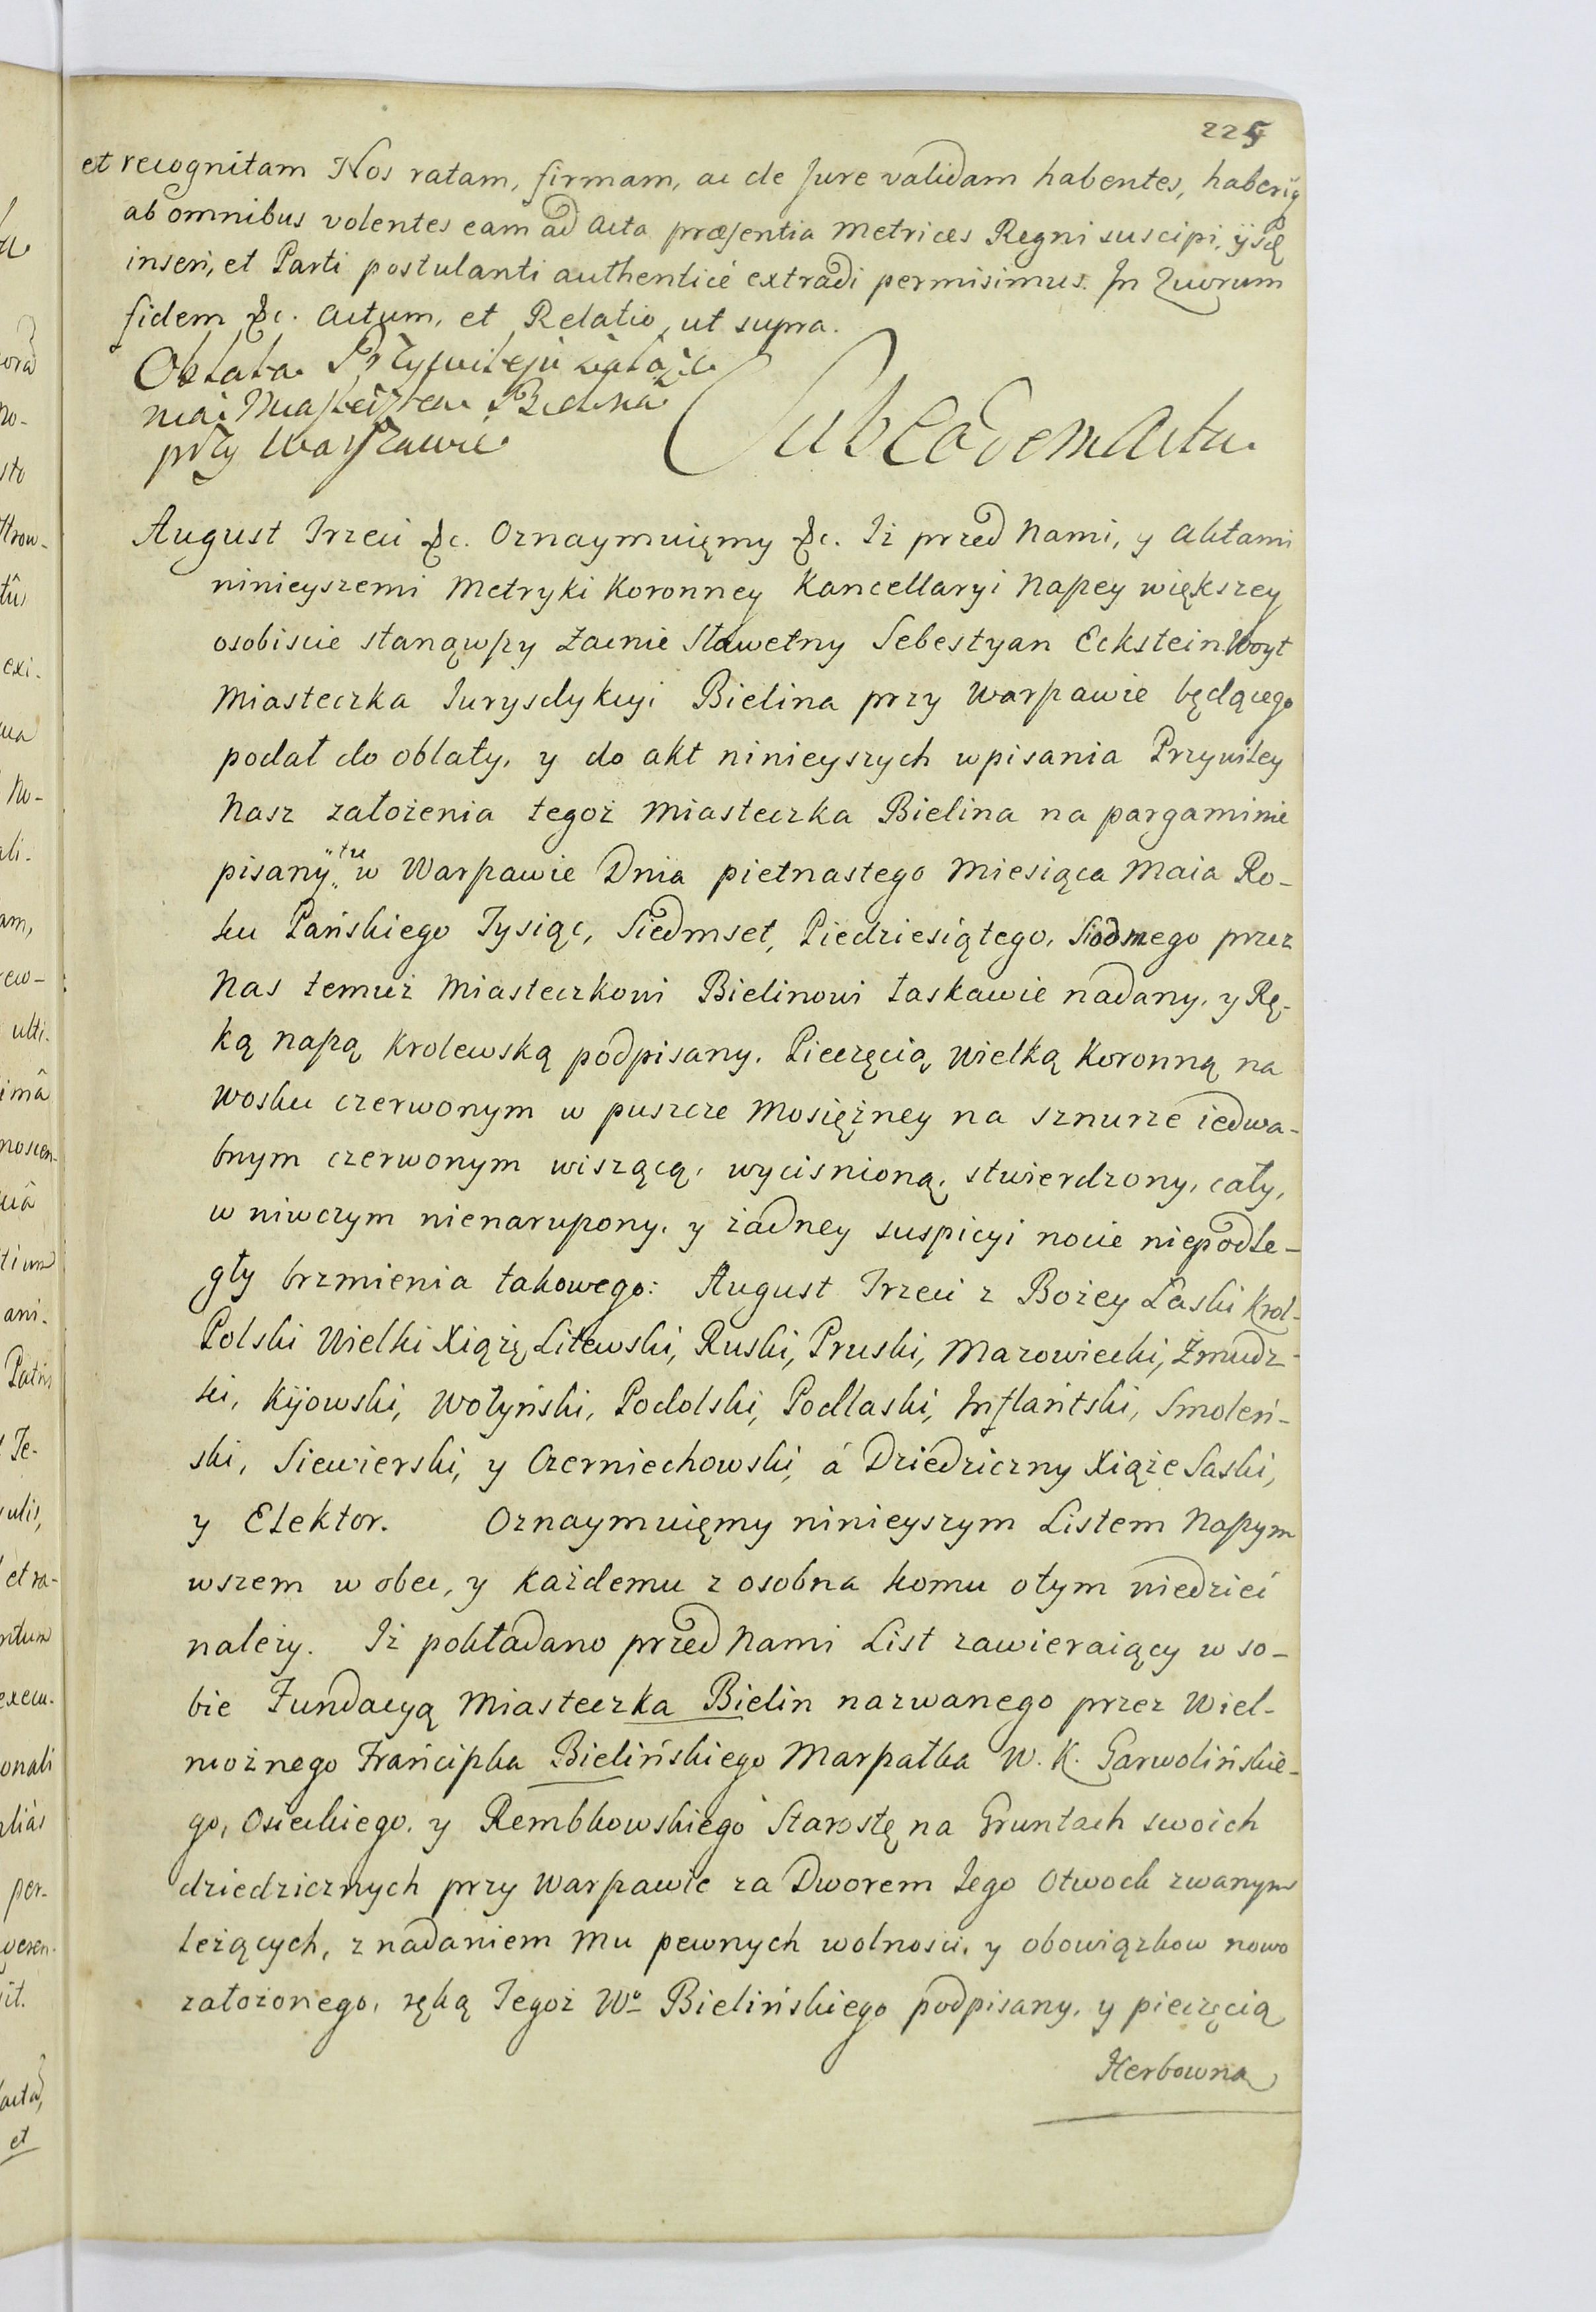 225
et recognitam Nos ratam, firmam, ac de Jure validam habentes, haberiq
ab omnibus volentes eam ad Acta præsentia Metrices Regni suscipi, ijsdę
inseri, et Parti postulanti authenticè extradi permisimus. In Quorum
fidem &c. Actum, et Relatio, ut supra.
Oblata Przywileju założe
nia Miasteczka Bielina
przy Warszawie
Sub eodem Actu
August Trzeci &c. Oznaymuięmy &c. Iż przed Nami, y Aktami
ninieyszemi Metryki Koronney Kancellaryi Naszey większey
osobiscie stanąwszy Zacnie Sławetny Sebestyan Eckstein Woyt
Miasteczka Jurysdykcyi Bielina przy Warszawie będącego
podał do oblaty, y do akt ninieyszych wpisania Przywiley
Nasz założenia tegoż Miasteczka Bielina na pargaminie
pisany tu w Warszawie Dnia pietnastego Miesiąca Maia Ro-
ku Pańskiego Tysiąc, Siedmset, Piedziesiątego, Siodmego przez
Nas temuż Miasteczkowi Bielinowi łaskawie nadany, y Rę-
ką naszą Krolewską podpisany. Pieczęcią Wielką Koronną na
Wosku czerwonym w puszcze Mosiężney na sznurze iedwa-
bnym czerwonym wiszącą, wycisnioną, stwierdzony, cały,
w niwczym nienaruszony, y żadney suspicyi nocie niepodle-
gły brzmienia takowego: August Trzeci z Bożey Łaski Krol-
Polski Wielki Xiążę Litewski, Ruski, Pruski, Mazowiecki, Żmudz-
ki, Kijowski, Wołyński, Podolski, Podlaski, Inflantski, Smoleń-
ski, Siewierski, y Czerniechowski, á Dziedziczny Xiąże Saski,
y Elektor. Oznaymuięmy ninieyszym Listem Naszym
wszem w obec, y każdemu z osobna komu otym wiedzieć
należy. Iż pokładano przed Nami List zawieraiący w so-
bie Fundacyą Miasteczka Bielin nazwanego przez Wiel-
możnego Franciszka Bielińskiego Marszałka W. K. Garwolińskie-
go, Osieckiego, y Rembkowskiego Starostę na Gruntach swoich
dziedzicznych przy Warszawie za Dworem Iego Otwock zwanym
leżących, z nadaniem mu pewnych wolnosci, y obowiązkow nowo
założonego, ręką Tegoż Wo Bielińskiego podpisany, y pieczęcią
Herbowną